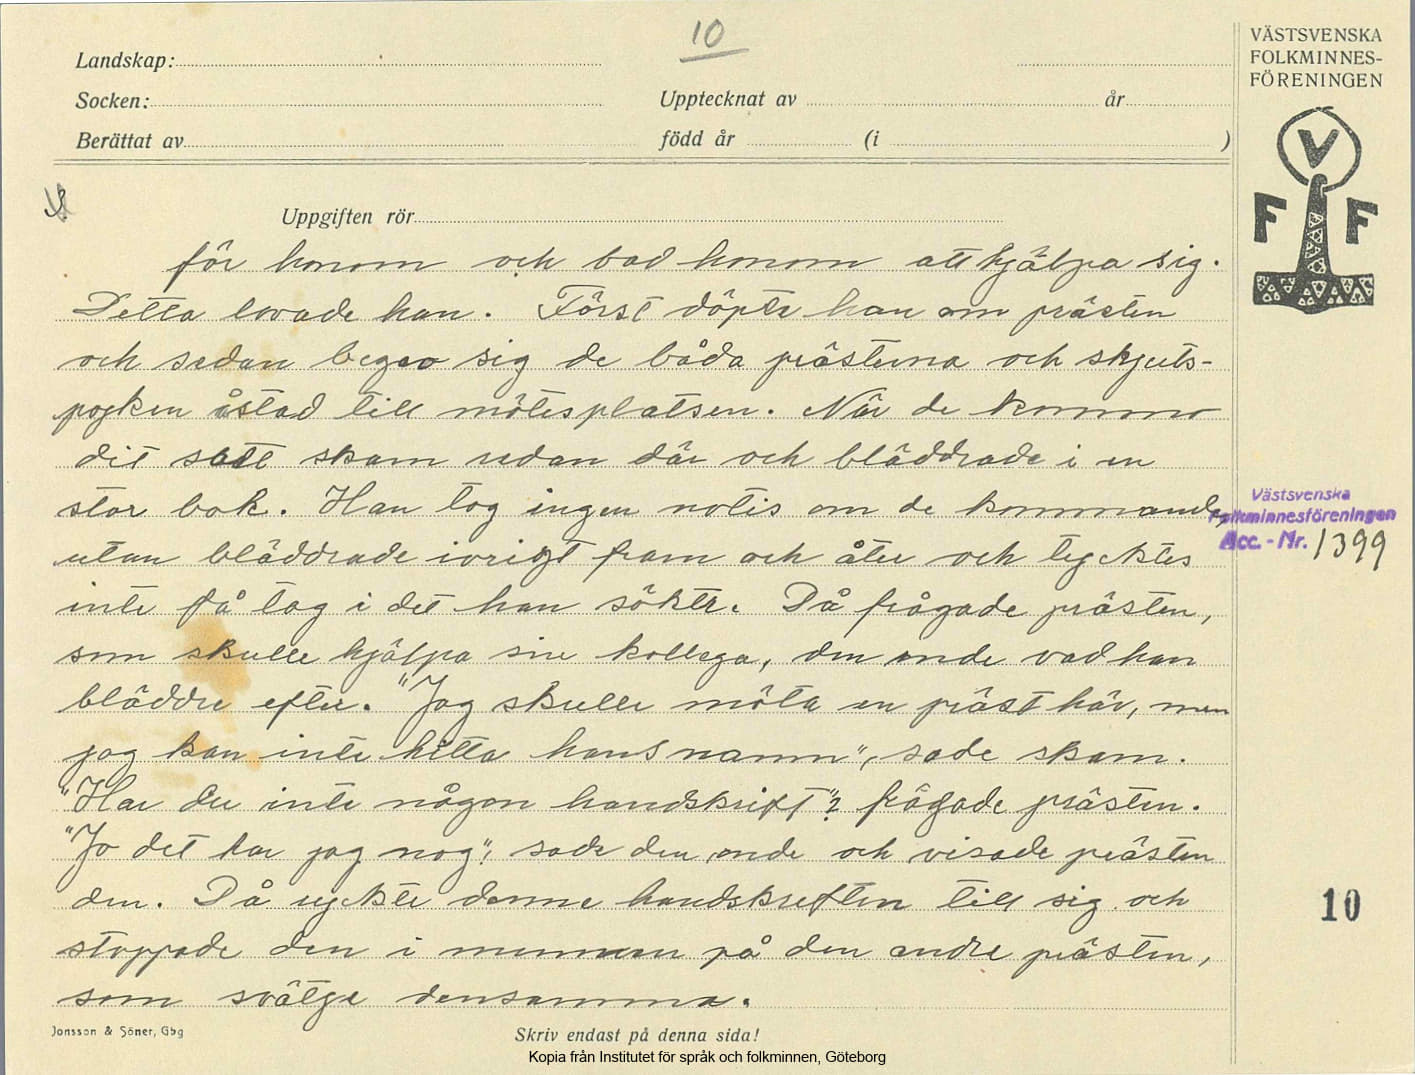 10
VÄSTSVENSKA
FOLKMINNES-
FÖRENINGEN
Landskap:
Socken:
Upptecknat av
år
Berättat av
född år
(i
)
V
F F
Uppgiften rör
för honom och bad honom att hjälpa sig.
Detta lovade han. Först döpte han om prästen
och sedan begav sig de båda prästerna och skjuts-
pojken åstad till mötesplatsen. När de kommo
dit satt skam redan där och bläddrade i en
stor bok. Han tog ingen notis om de kommande,
utan bläddrade ivrigt fram och åter och tycktes
inte få tag i det han sökte. Då frågade prästen,
som skulle hjälpa sin kollega, den onde vad han
bläddre efter. "Jag skulle möta en präst här, men
jag kan inte hitta hans namn", sade skam.
"Har du inte någon handskrift"? frågade prästen.
"Jo det har jag nog", sade den onde och visade prästen
den. Då ryckte denne handskriften till sig och
stoppade den i munnen på den andre prästen,
som svälge densamma.
Västsvenska
Folkminnesföreningen
Acc. - Nr. 1399
10
Jonsson & Söner, Gbg
Skriv endast på denna sida!
Kopia från Institutet för språk och folkminnen, Göteborg